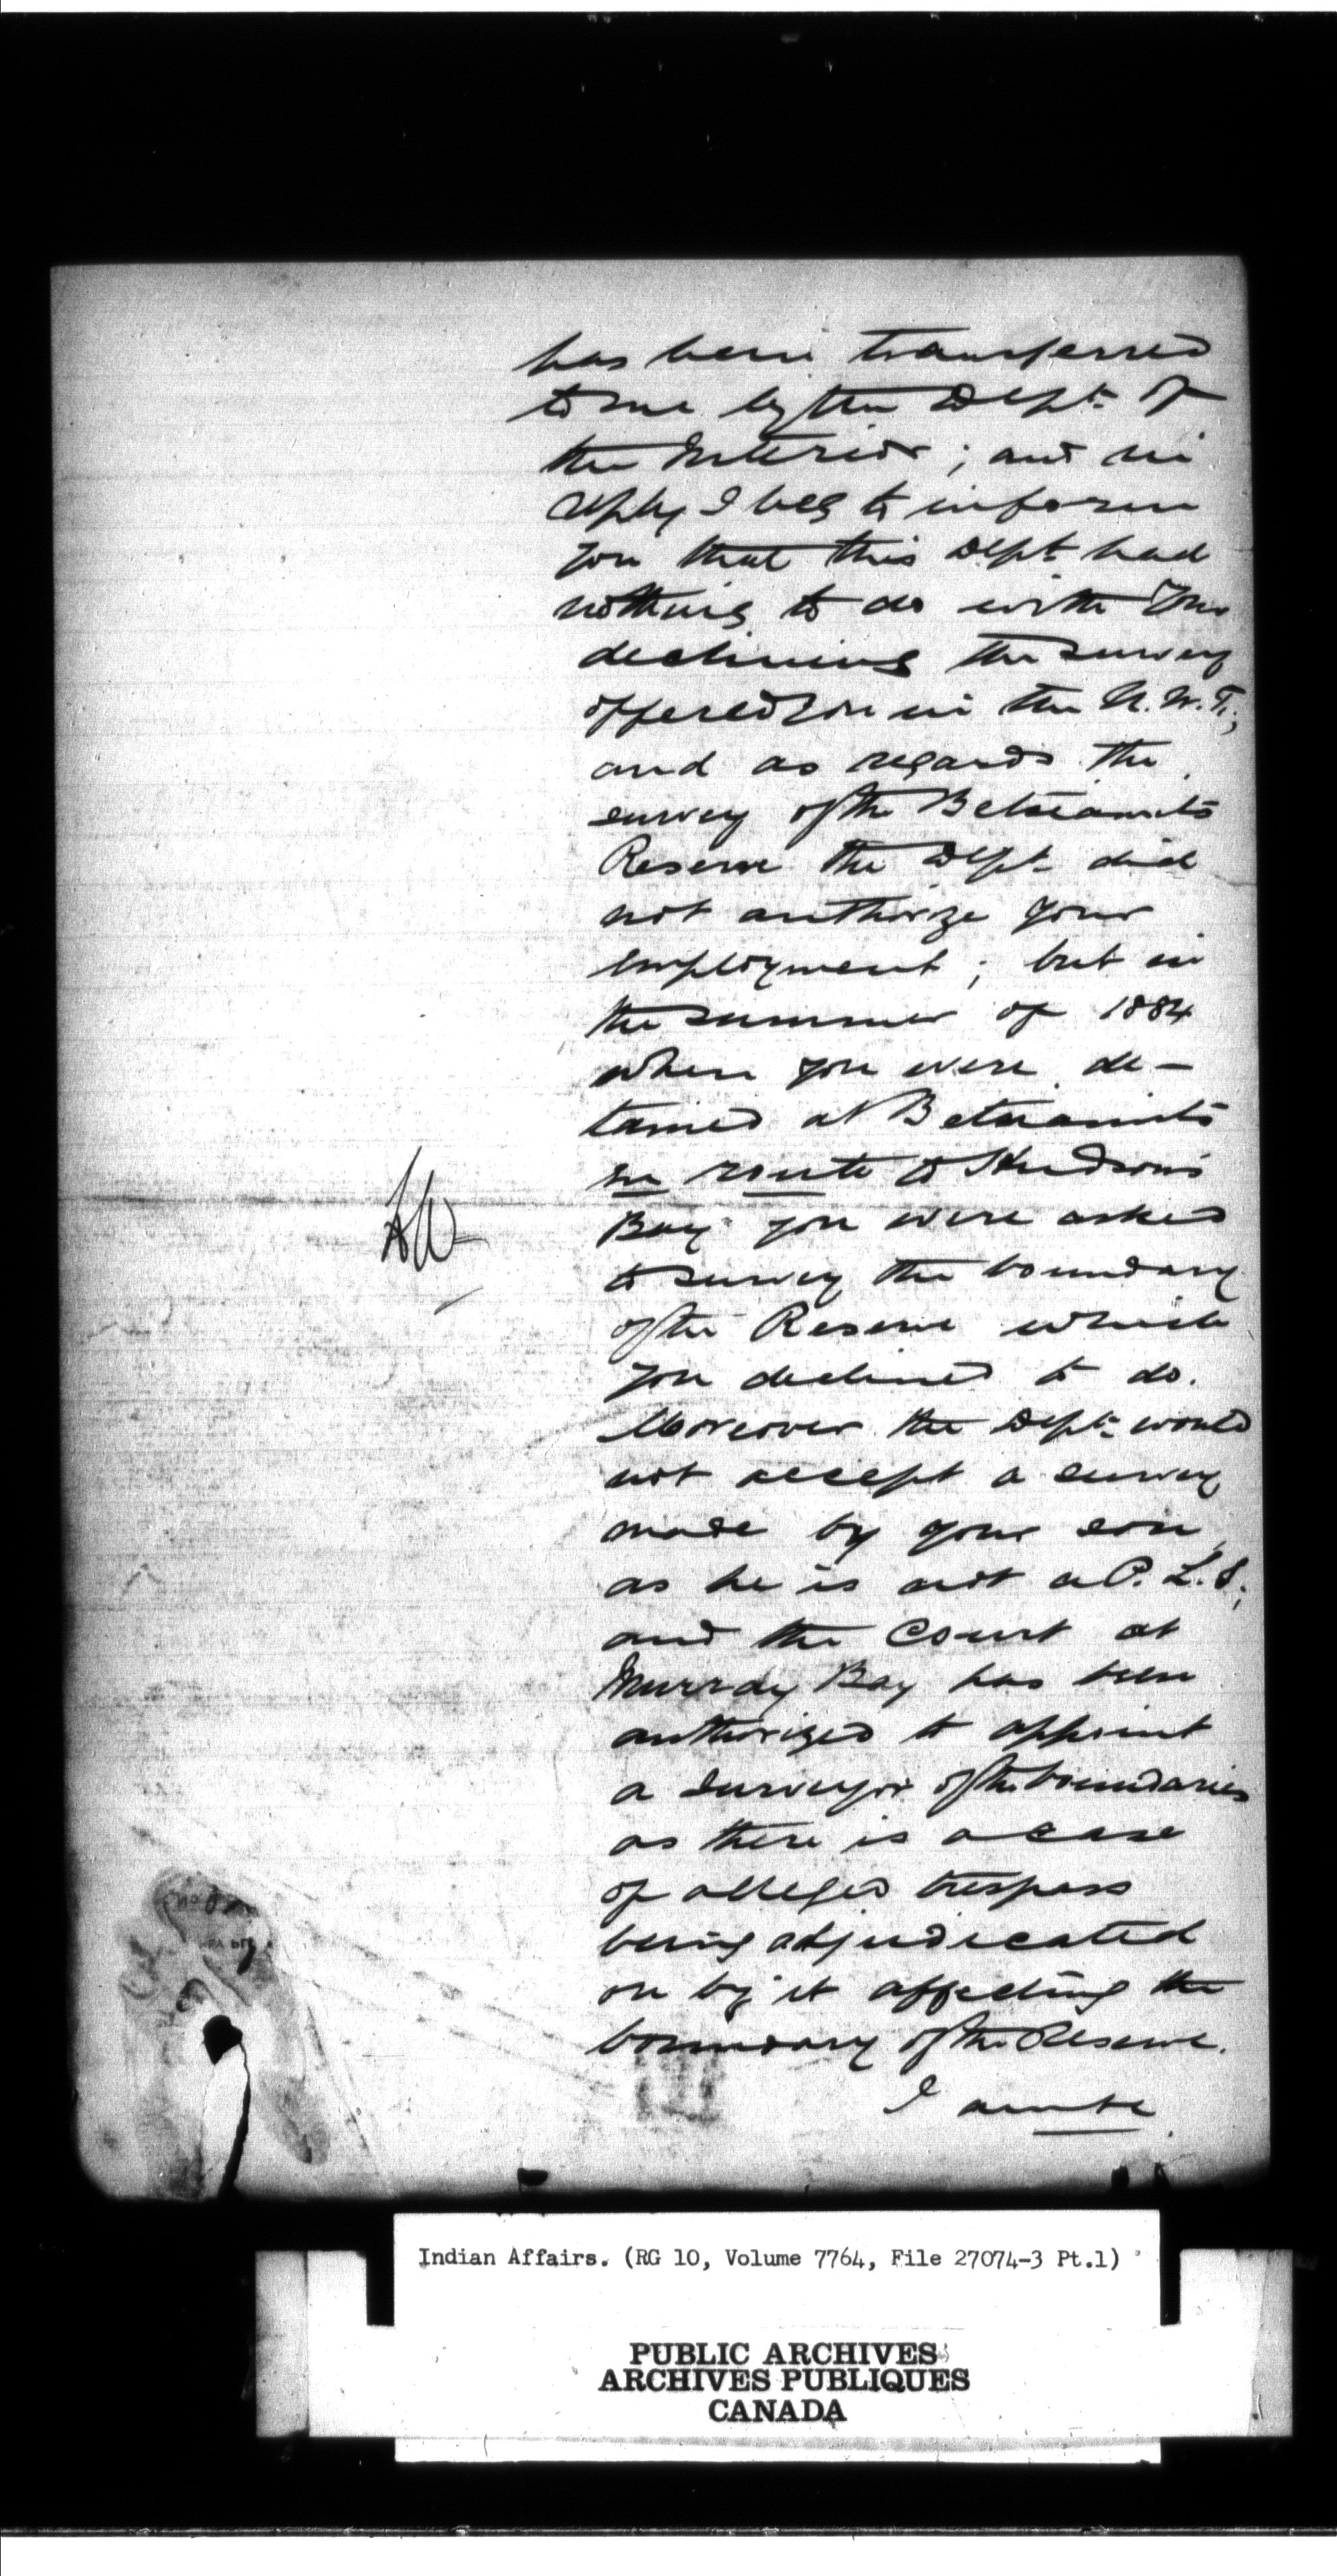 has been transferred
to me by the Dept. of
the Interior; and in
reply I beg to inform
you that this Dept. had
nothing to do with your
declining the survey
offered you in the N.W.T.;
and as regards the
survey of the Betsiamits
Reserve the Dept. did
not authorize your
employment; but in
the summer of 1884
when you were de-
tained at Betsiamits
en route to Hudson's
Bay you were asked
to survey the boundary
of the Reserve which
you declined to do.
Moreover the Dept. would
not accept a survey
made by your son
as he is not a P.L.S.;
and the Court at
Murray Bay has been
authorized to appoint
a surveyor of the boundaries
as there is a case
of alleged trespass
being adjudicated
on by it affecting the
boundary of the Reserve.
I am &c
Indian Affairs. (RG 10, Volume 7764, File 27074-3 Pt.1)
PUBLIC ARCHIVES
ARCHIVES PUBLIQUES
CANADA